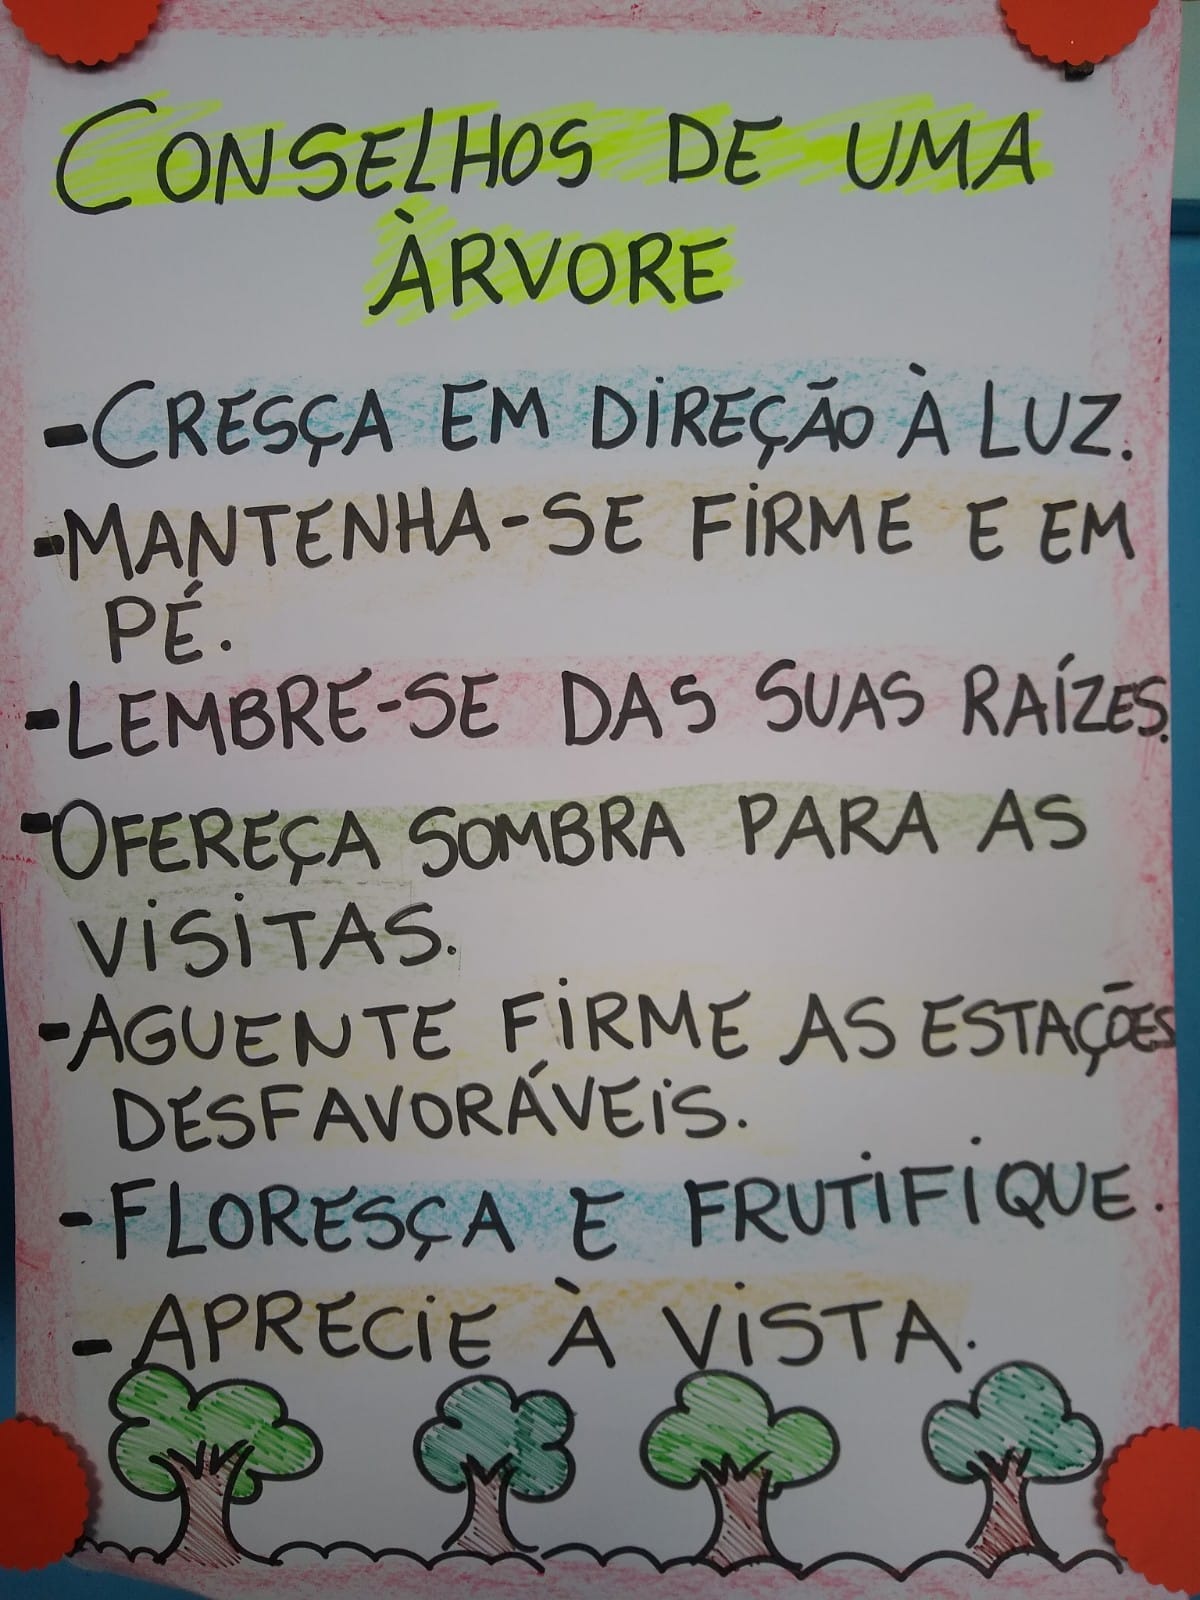 CONSELHOS DE UMA
ÀRVORE
-CRESÇA EM DIREÇÃO À LUZ.
-MANTENHA-SE FIRME E EM
PÉ.
-LEMBRE-SE DAS SUAS RAÍZES.
-OFEREÇA SOMBRA PARA AS
VISITAS.
-AGUENTE FIRME AS ESTAÇÕES
DESFAVORÁVEIS.
-FLORESÇA E FRUTIFIQUE.
-APRECIE À VISTA.